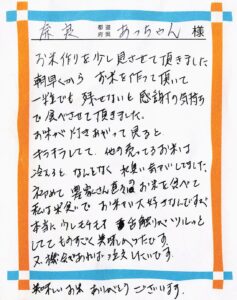 奈良 都道府県 あっちゃん 様
お米作りを少し見させて頂きました
朝早くから お米を作って頂いて
一粒でも 残せないと 感謝の気持ち
で食べさせて頂きました。
お米が 灯きあがって 見ると
キラキラしてて、他の売ってるお米は
冷えると なんとなく 水臭い気がしてました。
初めて 農家さん の お米を食べて
私は 米食いで お米が 大好きなんですが
本当に もちもち 舌触りが ツルっと
してて ものすごく 美味しかったです。
又 機会があれば いきたいです。
美味しい お米 ありがとう ございます。